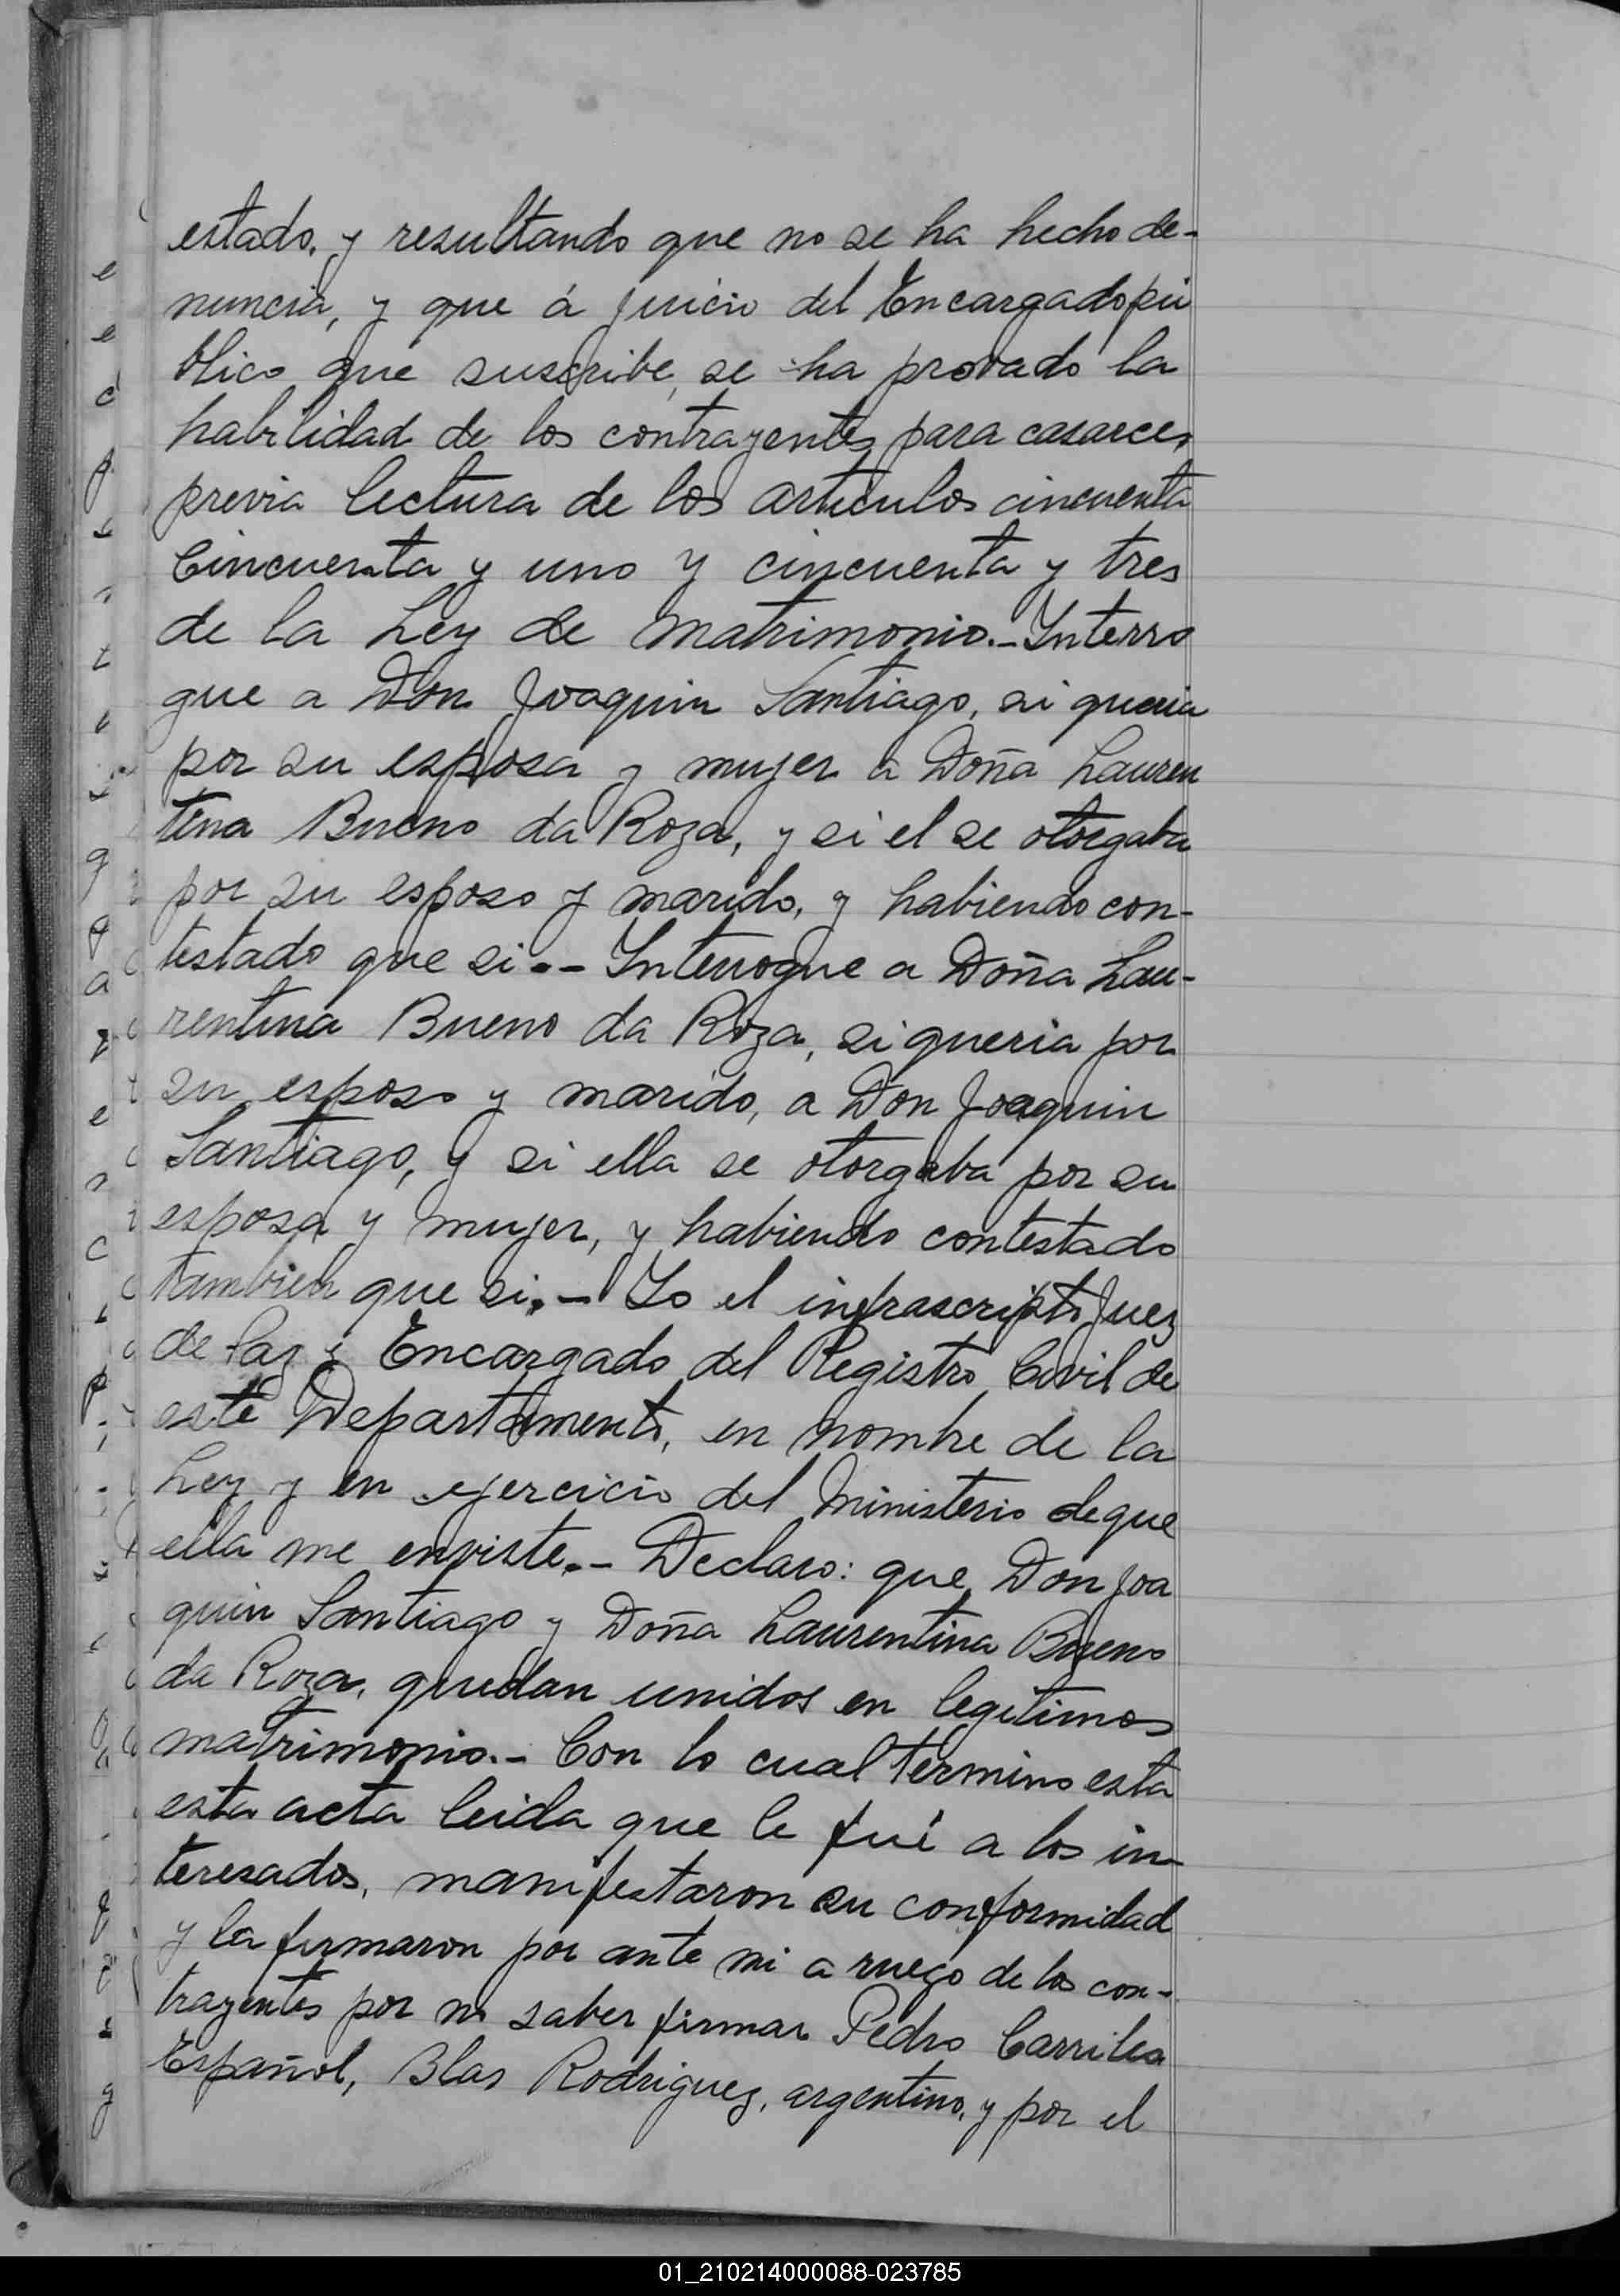 estado, y resultando que no se ha hecho de-
nuncia, y que á juicio del Encargado pú
blico que suscribe, se ha provado la
habilidad de los contrayentes para casarces,
previa lectura de los articulos cincuenta
Cincuenta y uno y cincuenta y tres
de la Ley de Matrimonio.- Interro
gue a Don Joaquin Santiago, si queria
por su esposa y mujer a Doña Lauren
tina Bueno da Roza, y si el se otorgaba
por su esposo y marido, y habiendo con-
testado que si.- Interrogue a Doña Lau-
rentina Bueno da Roza, si queria por
su esposo y marido, a Don Joaquin
Santiago, y si ella se otorgaba por su
esposa y mujer, y habiendo contestado
tambien que si.- Yo el infrascripto Juez
de Paz y Encargado del Registro Civil de
este Departamento, en nombre de la
Ley y en ejercicio del Ministerio de que
ella me enviste.- Declaro: que Don Joa
quin Santiago y Doña Laurentina Bueno
da Roza, quedan unidos en legitimos
matrimonio.- Con lo cual termino esta
esta acta leida que le fué a los in
teresados, manifestaron su conformidad
y la firmaron por ante mi a ruego de los con-
trayentes por no saber firmar Pedro Carriles
Español, Blas Rodriguez, argentino, y por el
01_210214000088-023785